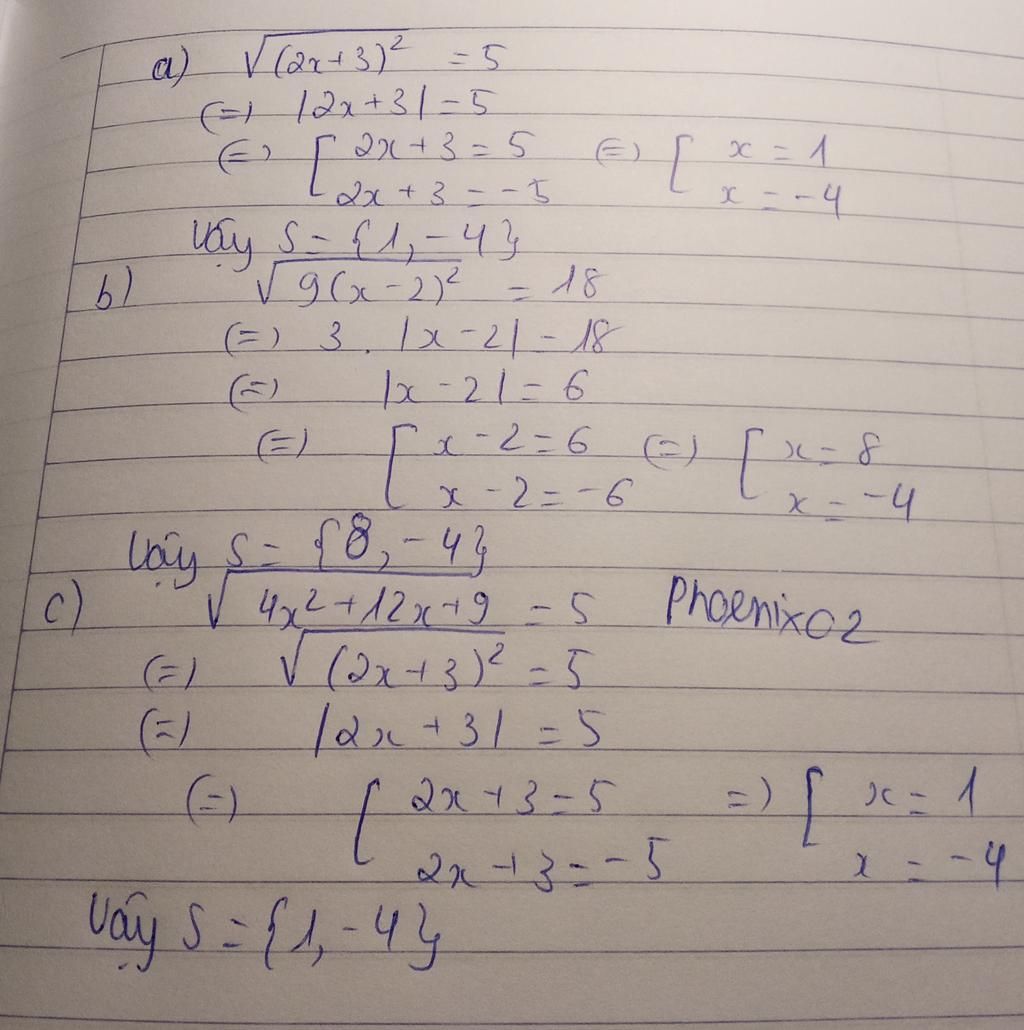 a) √(2x+3)² = 5
(=) |2x+3| = 5
(=) [ 2x+3 = 5 (=) [ x = 1
2x+3 = -5 x = -4
Vậy S = {1, -4}
b) √9(x-2)² = 18
(=) 3 . |x-2| = 18
(=) |x-2| = 6
(=) [ x-2 = 6 (=) [ x = 8
x-2 = -6 x = -4
Vậy S = {8, -4}
c) √4x²+12x+9 = 5 Phoenix02
(=) √(2x+3)² = 5
(=) |2x+3| = 5
(=) [ 2x+3 = 5 =) [ x = 1
2x+3 = -5 x = -4
Vậy S = {1, -4}